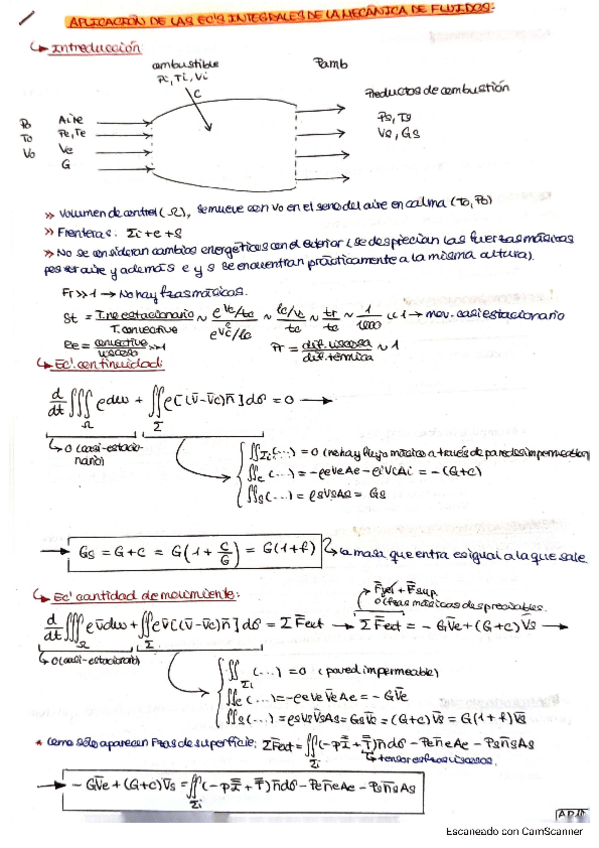 APLICACIÓN DE LAS EC'S INTEGRALES DE LA MECÁNICA DE FLUIDOS:
Introducción:
combustible
Pi, Ti, Vi
C
Pamb
Productos de combustión
Ps, Ts
Vs, Gs
Po
To
Vo
Aire
Pe, Te
Ve
G
» Volumen de control (Ω), se mueve con Vo en el seno del aire en calma (To, Po)
» Fronteras: Σc + e + s
» No se consideran cambios energéticos con el exterior (se desprecian las fuerzas másicas
por ser aire y además e y s se encuentran prácticamente a la misma altura).
Fr >> 1 → No hay fzas másicas.
St = T. no estacionario / T. convectivo ~ (ρVc/tc) / (ρVc²/lc) ~ (lc/Vc) / tc ~ tr/tc ~ 1/1000 << 1 → mov. casiestacionario
Re = convectivo / viscoso >> 1 Pr = dif. viscosa / dif. térmica ~ 1
Ec. continuidad:
d/dt ∭Ω ρdω + ∬Σ ρ[(v̄-v̄c)n̄]dσ = 0 →
0 (casi-estacionario)
∬Σi (...) = 0 (no hay flujo másico a través de paredes impermeables)
∬e (...) = -ρeVeAe - ρiViAi = -(G+c)
∬s (...) = ρsVsAs = Gs
→ Gs = G+c = G(1 + C/G) = G(1+f) La masa que entra es igual a la que sale
Ec. cantidad de movimiento:
F̄vol + F̄sup.
0 (fzas másicas despreciables.
d/dt ∭Ω ρv̄dω + ∬Σ ρv̄[(v̄-v̄c)n̄]dσ = ΣF̄ext → ΣF̄ext = -GV̄e + (G+c)V̄s →
0 (casi-estacionario)
∬Σi (...) = 0 (pared impermeable)
∬e (...) = -ρeVeV̄eAe = -GV̄e
∬s (...) = ρsVsV̄sAs = GsV̄s = (G+c)V̄s = G(1+f)V̄s
* Como sólo aparecen Fzas de superficie: ΣF̄ext = ∬Σi (-pĪ + τ̄)n̄dσ - Pen̄eAe - Psn̄sAs
tensor esfuerzos viscosos.
→ -GV̄e + (G+c)V̄s = ∬Σi (-pĪ + τ̄)n̄dσ - Pen̄eAe - Psn̄sAs
Escaneado con CamScanner